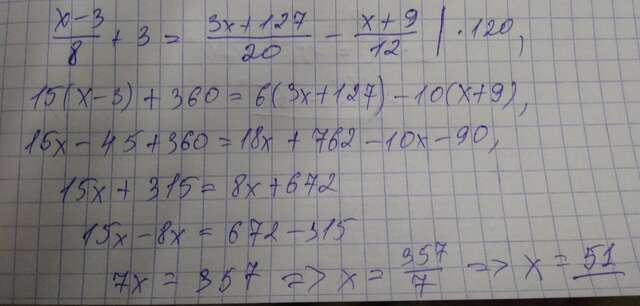 (x-3)/8 + 3 = (3x+127)/20 - (x+9)/12 | ·120,
15(x-3) + 360 = 6(3x+127) - 10(x+9),
15x - 45 + 360 = 18x + 762 - 10x - 90,
15x + 315 = 8x + 672
15x - 8x = 672 - 315
7x = 357 => x = 357/7 => x = 51